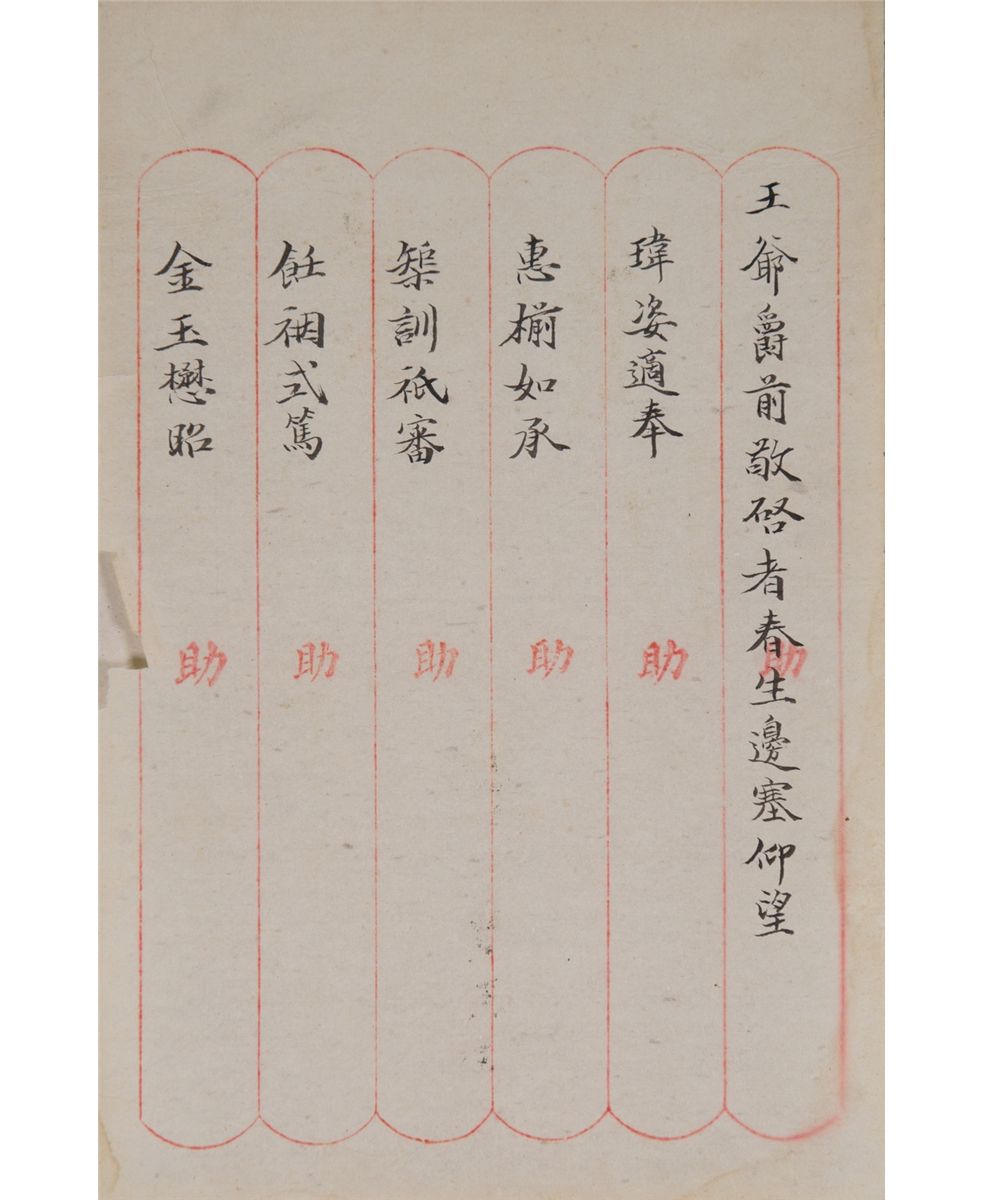 王爺爵前敬啓者春生邊塞仰望
瑋姿適奉
惠椾如承
榘訓祇審
飪裀式篤
金玉懋昭
助
助
助
助
助
助